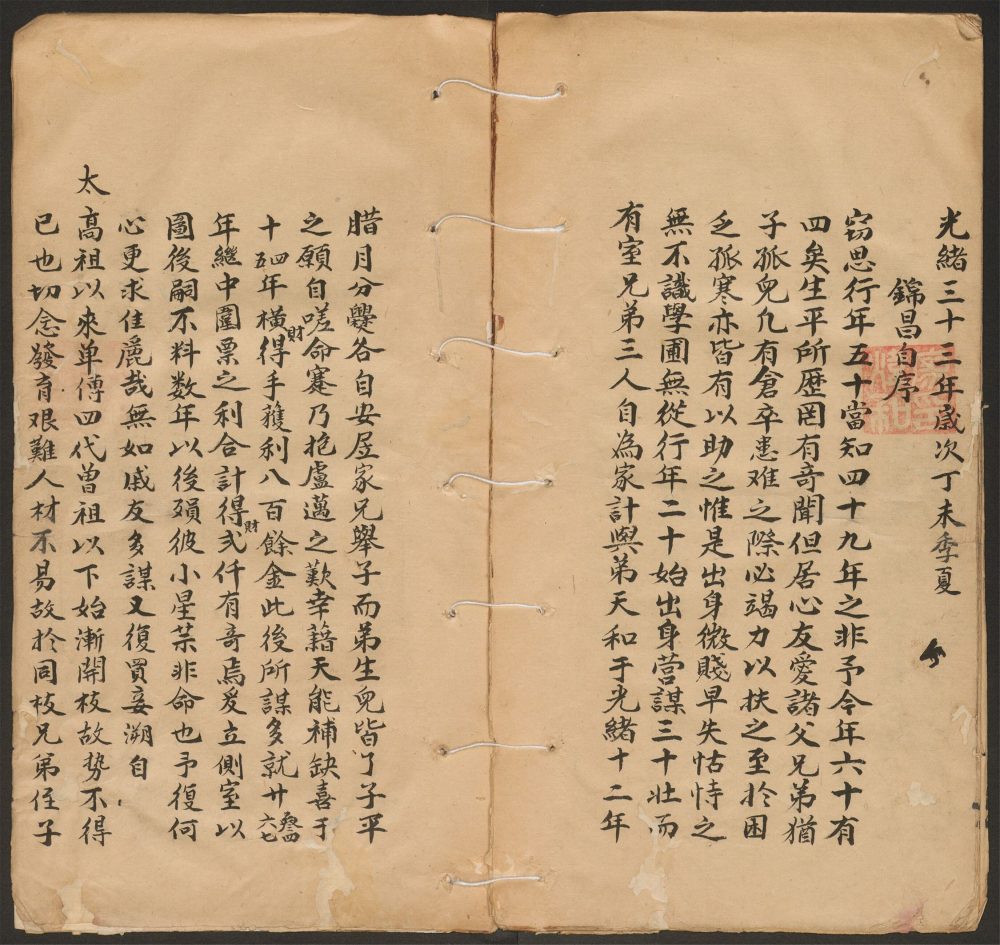 光緒三十三年歲次丁未季夏
錦昌自序
窃思行年五十當知四十九年之非予今年六十有
四矣生平所歴罔有奇聞但居心友愛諸父兄弟猶
子孤兒凢有倉卒患难之際必竭力以扶之至於困
乏孤寒亦皆有以助之惟是出身微賤早失怙恃之
無不識學圃無從行年二十始出身营謀三十壯而
有室兄弟三人自為家計與弟天和于光緒十二年
腊月分爨各自安居家兄舉子而弟生兒皆了子平
之願自嗟命蹇乃抱盧邁之歎幸藉天能補缺喜于
十四五年橫得財手獲利八百餘金此後所謀多就廿叁四六七
年繼中圍票之利合計得財弍仟有奇焉爰立側室以
圖後嗣不料数年以後殞彼小星荣非命也予復何
心更求佳麗哉無如戚友多謀又復買妾溯自
太高祖以來单傳四代曾祖以下始漸開枝故势不得
已也切念發育艰難人材不易故於同枝兄弟侄子